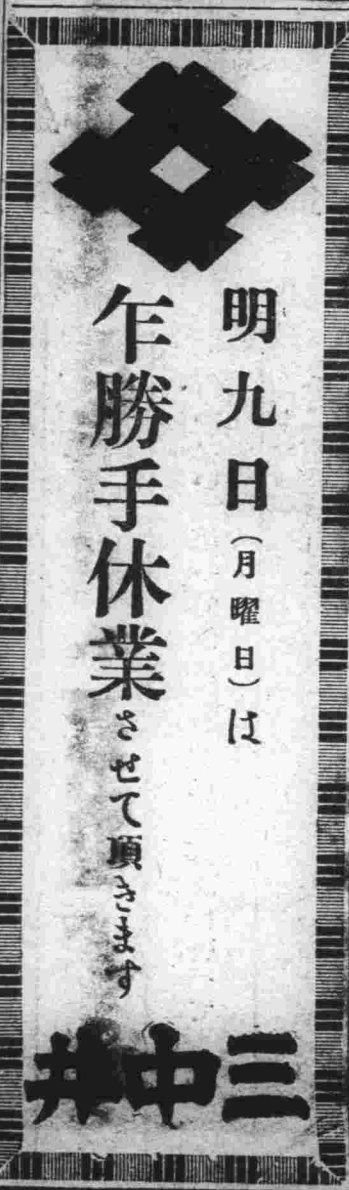 明九日(月曜日)は
乍勝手休業させて頂きます
三中井